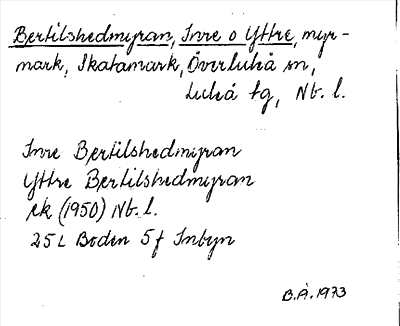 Bertilshedmyran, Inre o Yttre, myr-
mark, Skatamark, Överluleå sn,
Luleå tg, Nb. l.
Inre Bertilshedmyran
Yttre Bertilshedmyran
ek (1950) Nb. l.
25 L Boden 5 f Inbyn
B.Å. 1973